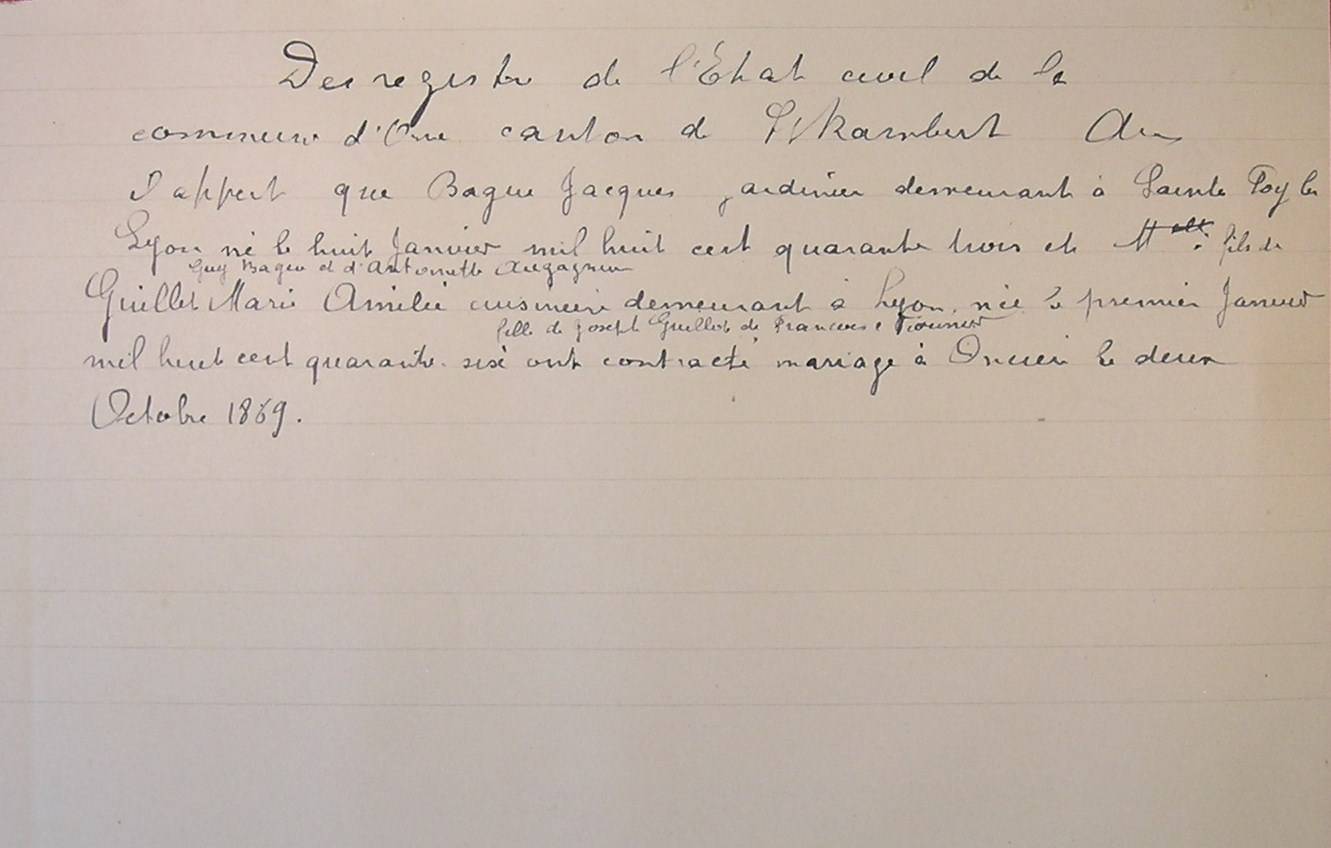 Des registre de l'Etat civil de la
commune d'One canton de St Rambert Ain
Il appert que Bague Jacques jardinier demeurant à Sainte Foy les
Lyon né le huit Janvier mil huit cent quarante trois et Mlle fils de
Guy Bague et d'Antoinette Augagneur
Guillet Marie Amélie cuisinière demeurant à Lyon, née le premier Janvier
fille de Joseph Guillet de Francoise
mil huit cent quarante six ont contracté mariage à Oncieu le deux
Octobre 1869.